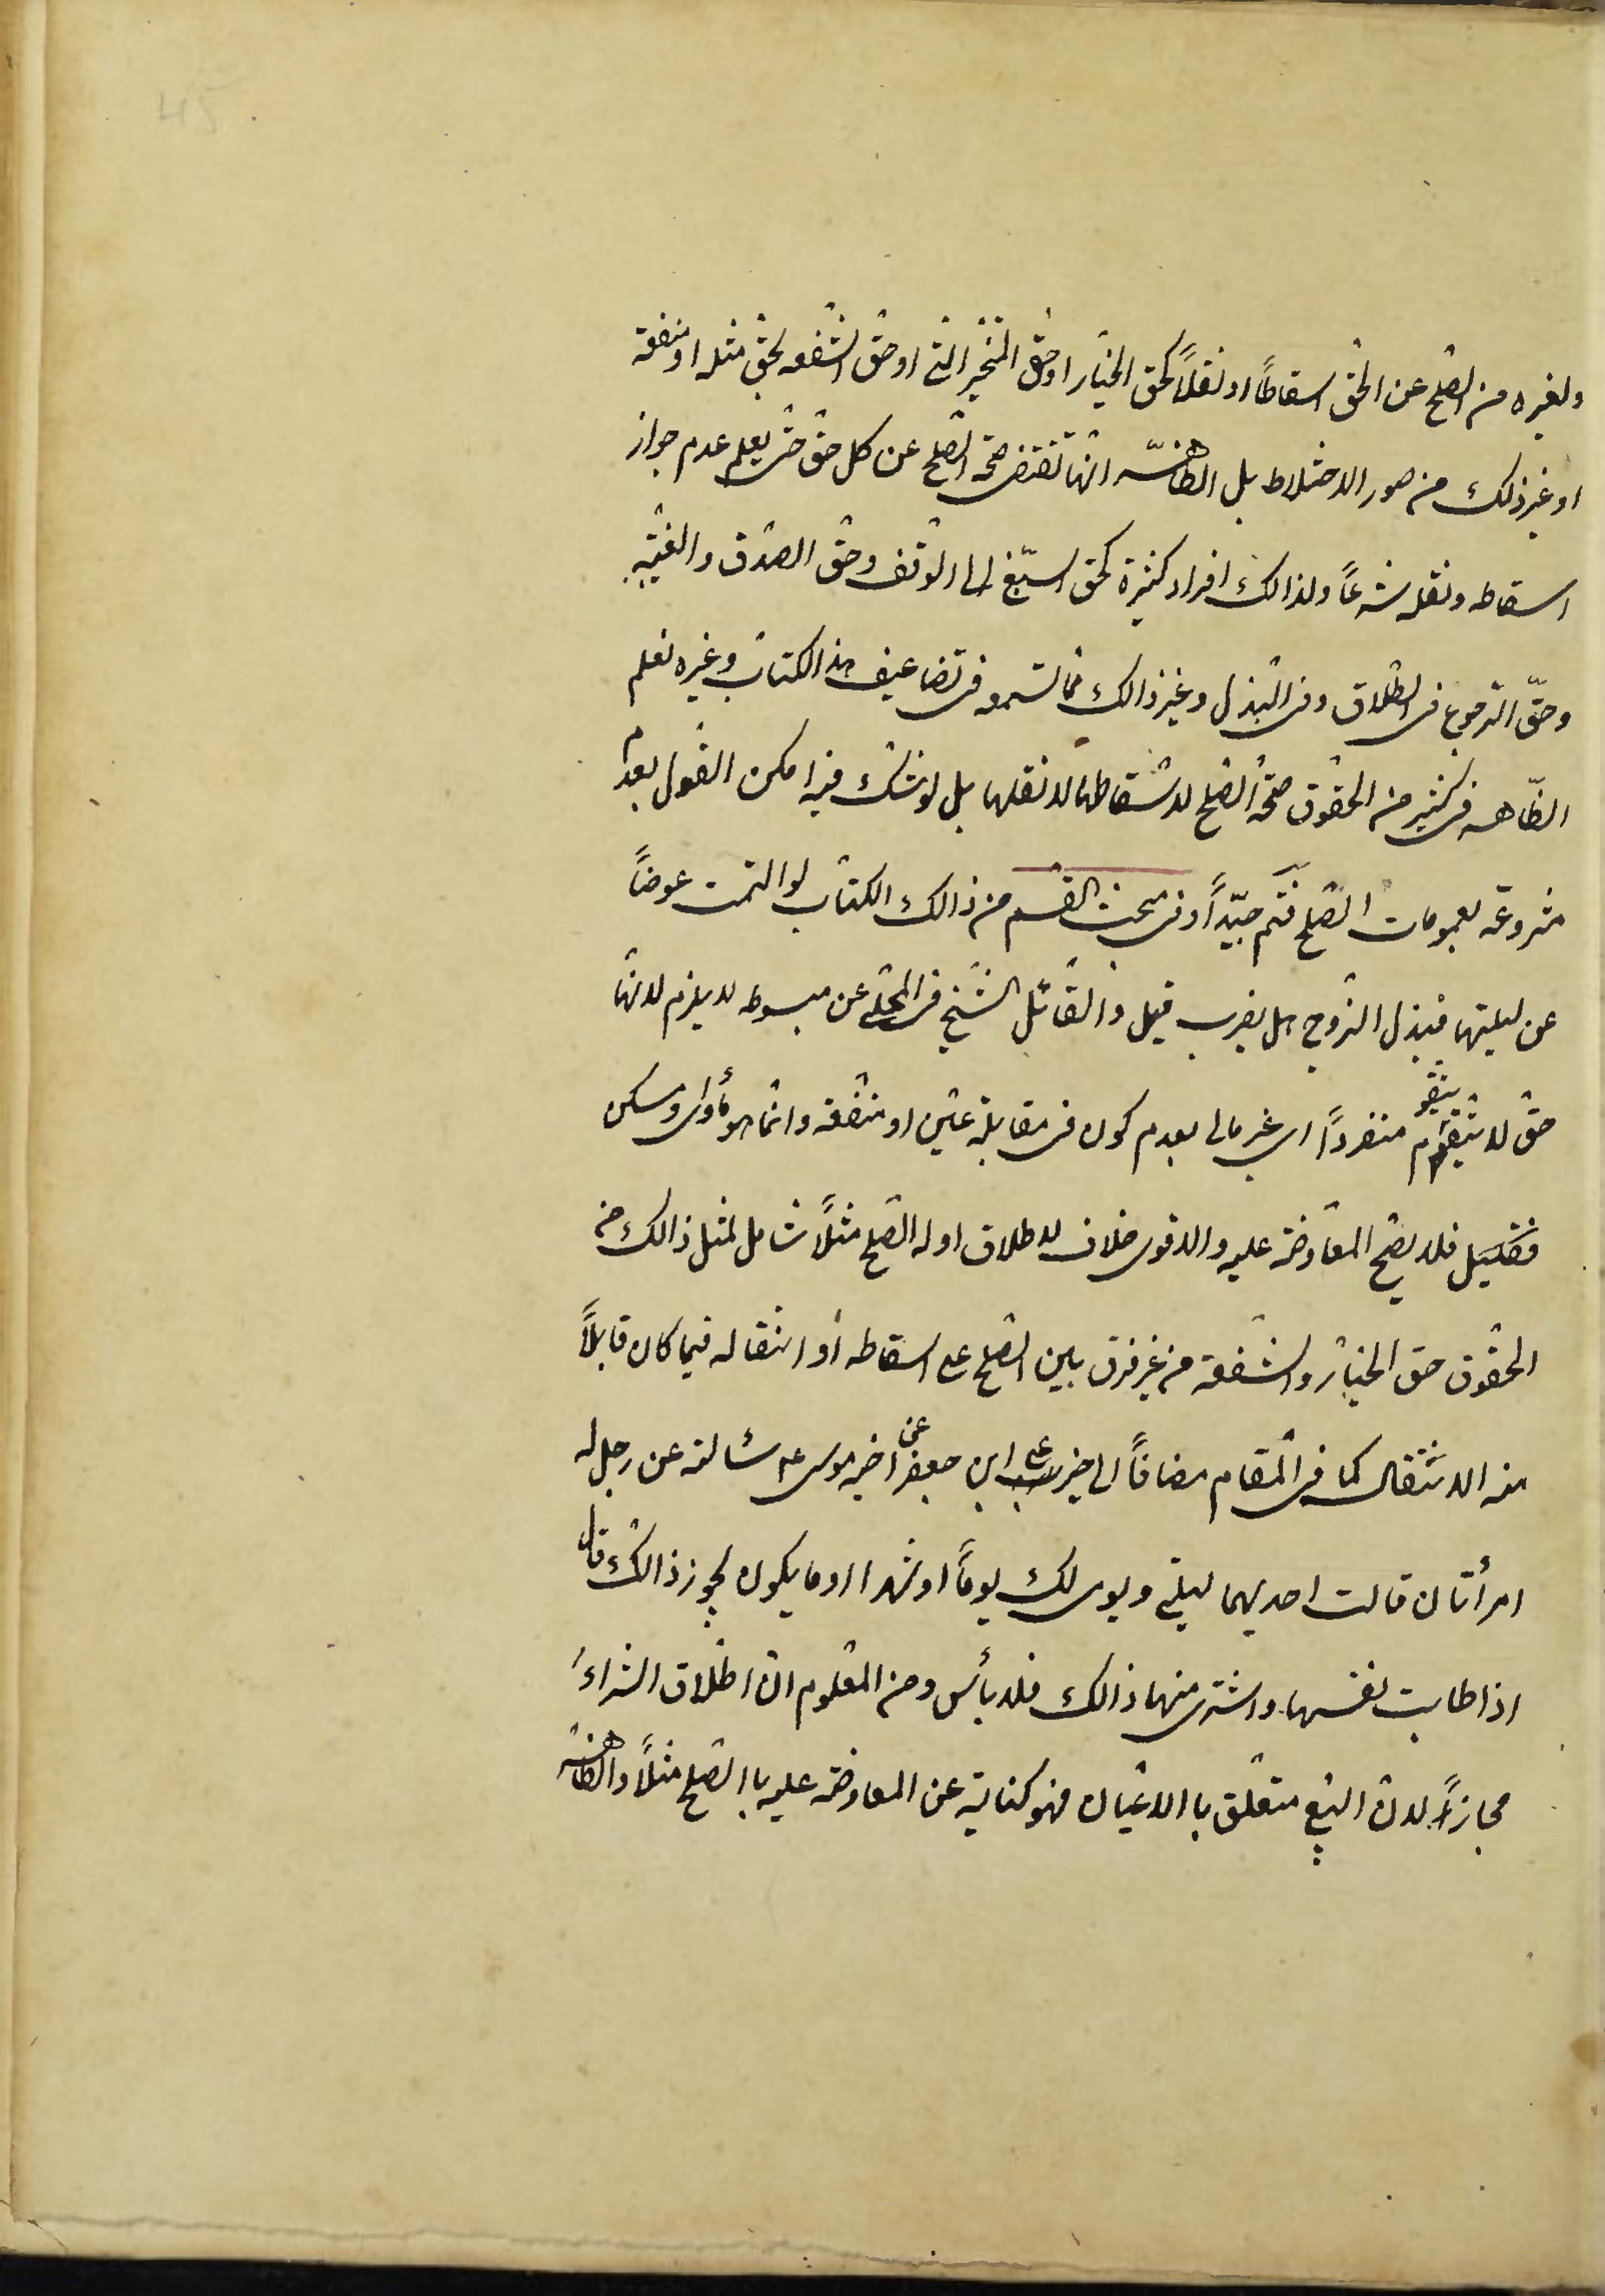 45
ولغيره من الصلح عن الحق اسقاطاً او نقلاً كحق الخيار او حق التحجير او حق الشفعه بحق مثله او منفعة
او غير ذلك من صور الاختلاط بل الظاهر انها تقتضى صحة الصلح عن كل حق حتى يعلم عدم جواز
اسقاطه ونقله شرعاً ولذالك افراد كثيرة كحق السبق الى الوقف وحق الصدق والغيبة
وحقّ الرجوع فى الطلاق وفى البذل وغير ذالك مما تسمعه فى تضاعيف هذا الكتاب وغيره نعلم
الظّاهر فى كثير من الحقوق صحّة الصلح لاسقاطها لا نقلها بل لو شك فيه امكن القول بعدم
مشروعيته لعمومات الصلح فتم جيّداً وفى مبحث القسم من ذالك الكتاب لو التمست عوضاً
عن ليلتها فبذل الزوج هل يضرب قيل والقائل الشيخ فى المحكى عن مبسوطه لا يلزم لانّها
حق لا يتقوم يتقو منفرداً اى غير مالى بعدم كون فى مقابلة عين او منفعة وانما هو مأوى ومسكن
فقليل فلا يصح المعاوضة عليه والاقوى خلاف لاطلاق اوله الصلح مثلاً شامل لمثل ذالك من
الحقوق حق الخيار والشفعة من غير فرق بين الصلح على اسقاطه او انتقاله فيما كان قابلاً
منه الانتقال كما فى المقام مضافاً الى خبر على ابن جعفر عن اخيه موسى ع سئالته عن رجل له
امرأتان قالت احديهما ليلتى ويومى لك يوماً او شهرا او ما يكون يجوز ذالك قال
اذا طابت نفسها واشترى منها ذالك فلا بأس ومن المعلوم انّ اطلاق الشراء
مجازاً لان البيع متعلق با الاعيان فهو كناية عن المعاوضة عليه با الصلح مثلاً والظاهر